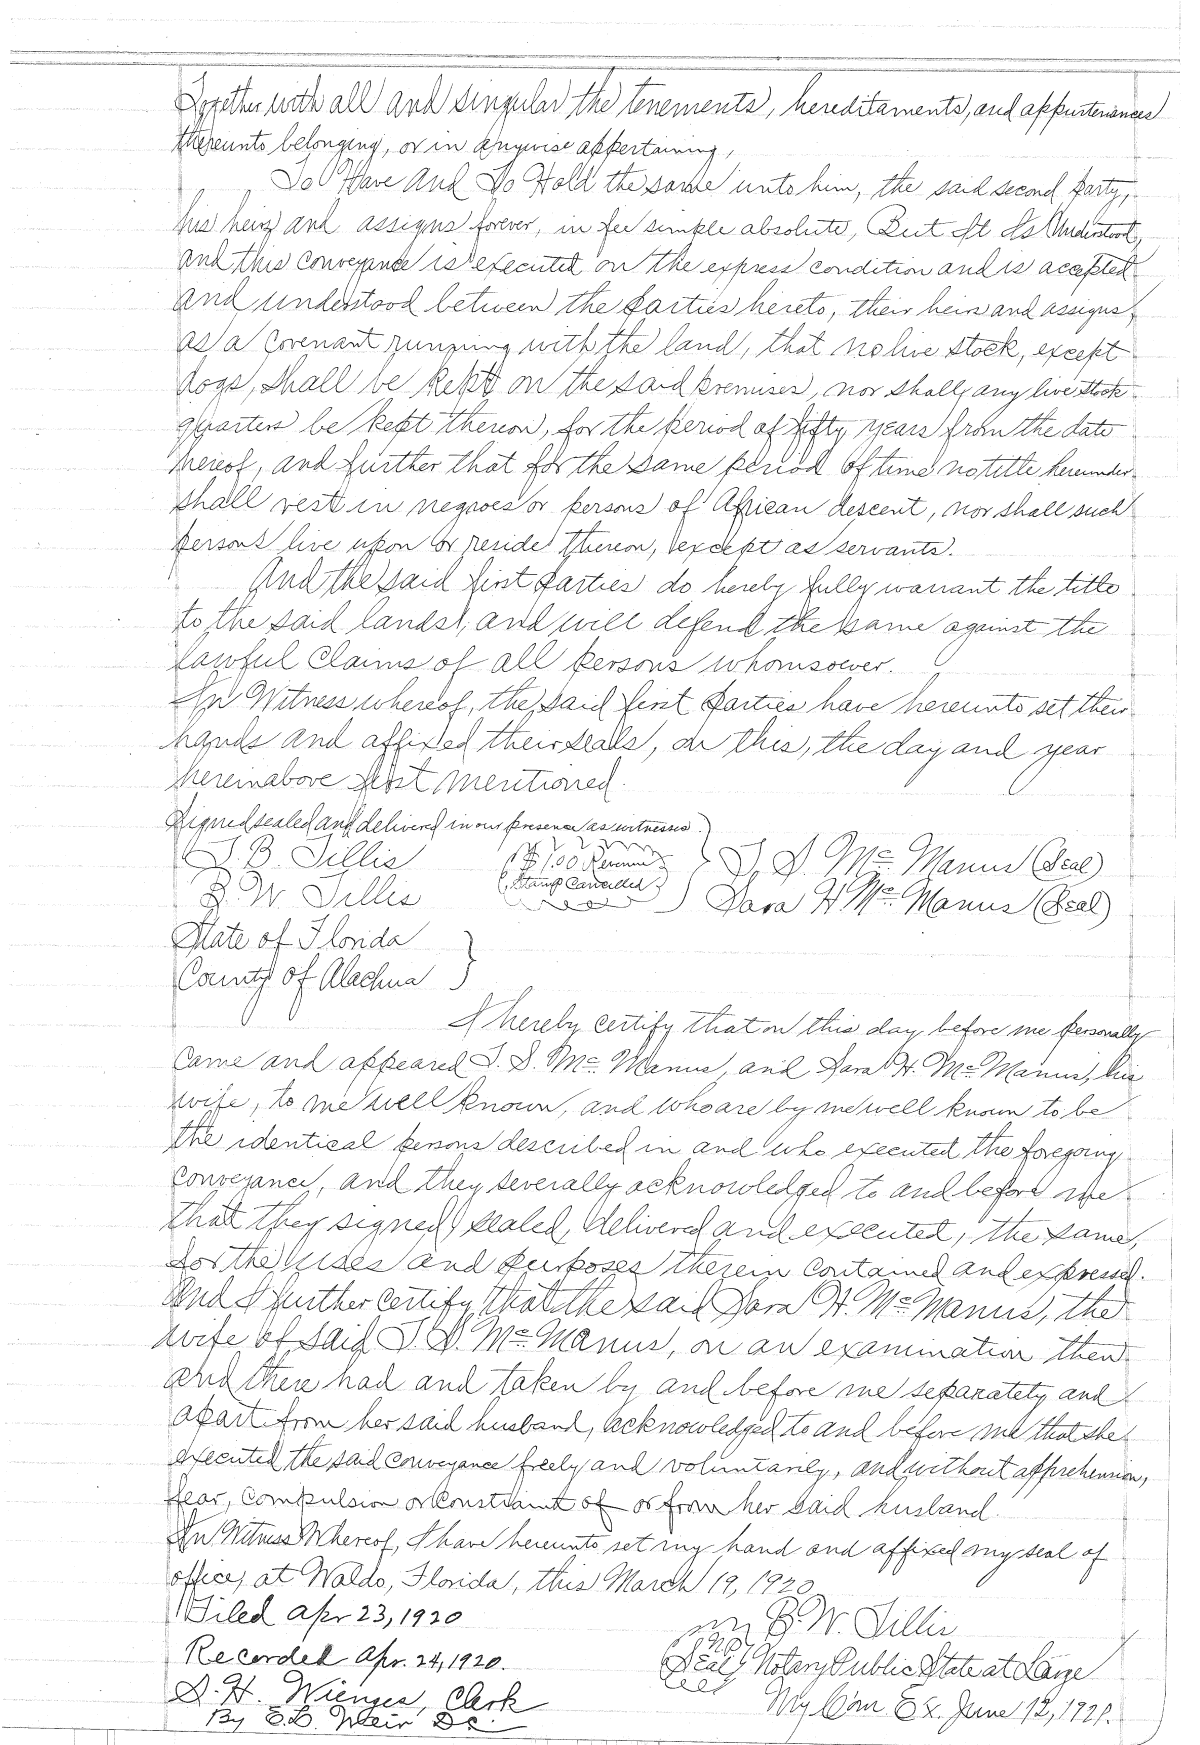 Together with all and singular the tenements, hereditaments, and appurtenances
thereunto belonging, or in anywise appertaining,
To Have And To Hold the same unto him, the said second party,
his heirs and assigns forever, in fee simple absolute, But It Is Understood,
and this conveyance is executed on the express condition and is accepted
and understood between the parties hereto, their heirs and assigns,
as a covenant running with the land, that no live stock, except
dogs, shall be kept on the said premises, nor shall any live stock
quarters be kept thereon, for the period of fifty years from the date
hereof, and further that for the same period of time no title hereunder
shall vest in negroes or persons of African descent, nor shall such
persons live upon or reside thereon, except as servants.
And the said first parties do hereby fully warrant the title
to the said lands, and will defend the same against the
lawful claims of all persons whomsoever.
In Witness whereof, the said first parties have hereunto set their
hands and affixed their seals, on this, the day and year
hereinabove first mentioned.
Signed sealed and delivered in our presence as witnesses
J. B. Tillis ($1.00 Revenue T. S. Mc Manus (Seal)
B. W. Tillis (Stamp Cancelled) Sara H Mc Manus (Seal)
State of Florida
County of Alachua
I hereby certify that on this day before me personally
came and appeared T. S. Mc Manus, and Sara H. Mc Manus, his
wife, to me well known, and who are by me well known to be
the identical persons described in and who executed the foregoing
conveyance, and they severally acknowledged to and before me
that they signed, sealed, delivered and executed, the same,
for the uses and purposes therein contained and expressed.
And I further certify that the said Sara H. Mc Manus, the
wife of said T. S. Mc Manus, on an examination then
and there had and taken by and before me separately and
apart from her said husband, acknowledged to and before me that she
executed the said conveyance freely and voluntarily, and without apprehension,
fear, compulsion or constraint of or from her said husband.
In Witness Whereof, I have hereunto set my hand and affixed my seal of
office, at Waldo, Florida, this March 19, 1920
Filed Apr 23, 1920 B. W. Tillis
Recorded Apr. 24, 1920. (N.P. Seal) Notary Public State at Large
S. H. Wienges, Clerk My Com. Ex. June 12, 1921.
By E. L. Weir D.C.